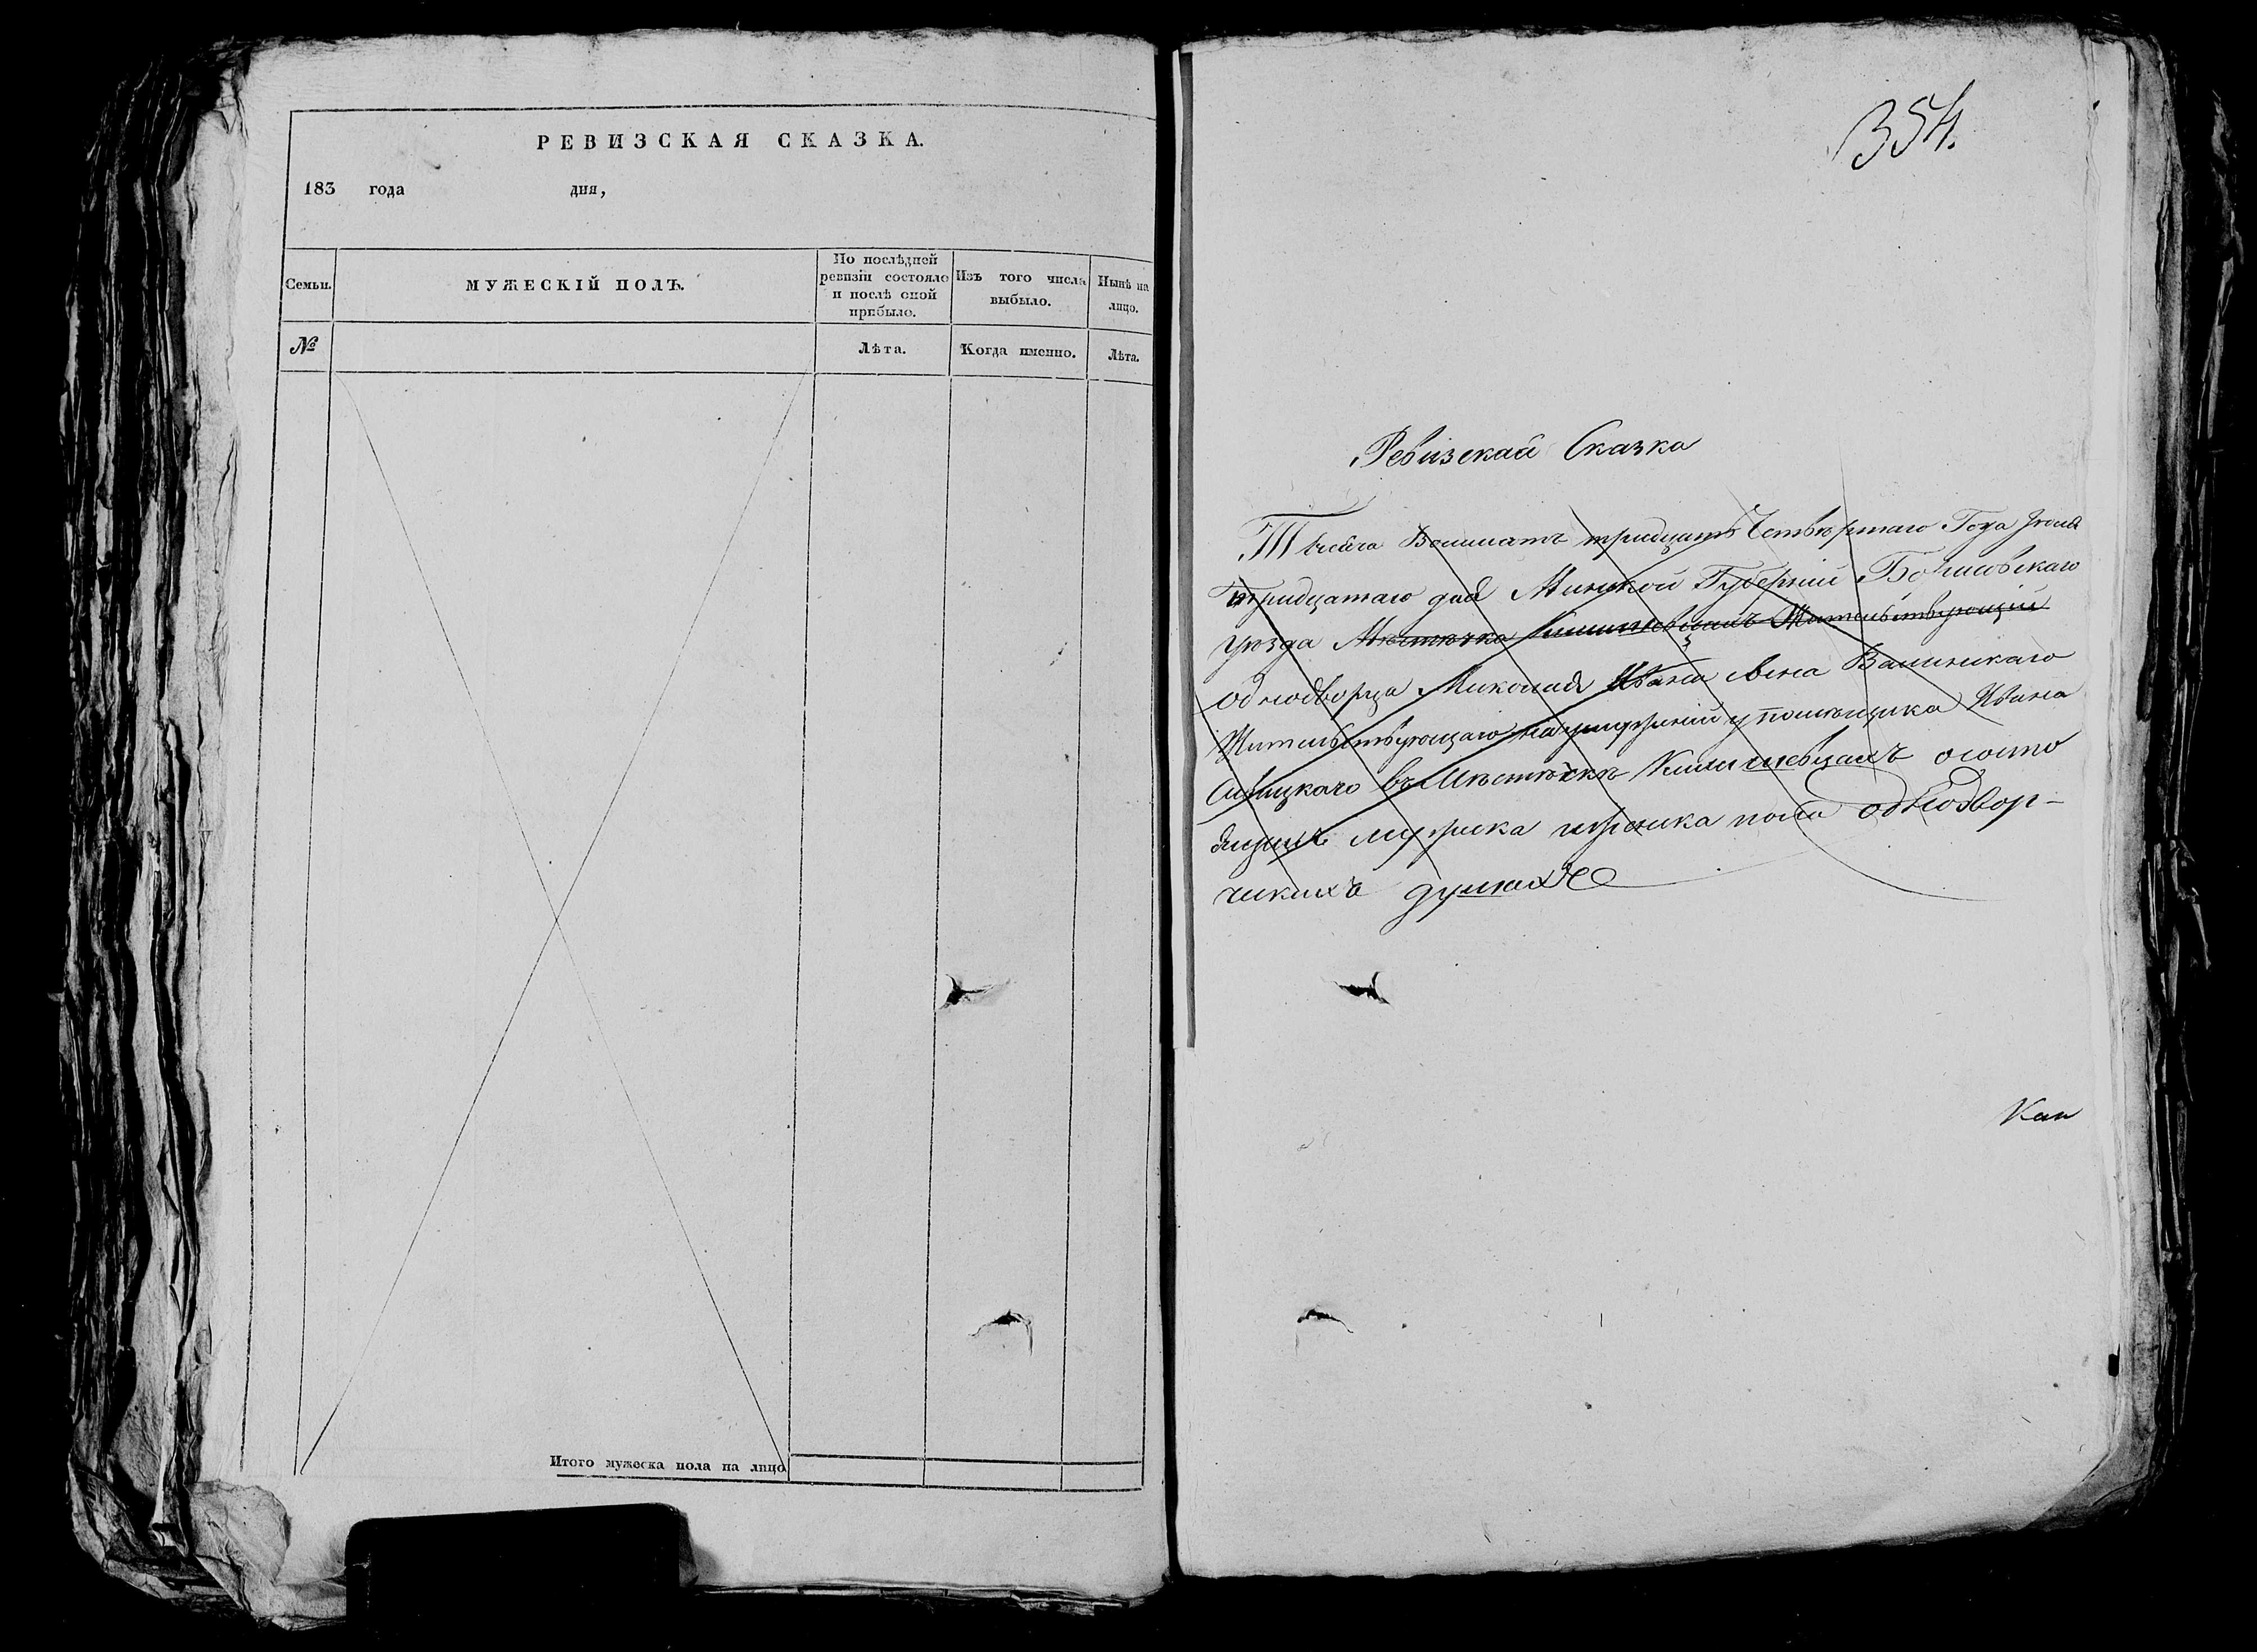 РЕВИЗСКАЯ СКАЗКА.
183 года дня,
Семьи.
МУЖЕСКІЙ ПОЛЪ.
По послѣдней
ревизіи состояло
и послѣ оной
прибыло.
Изъ того числа
выбыло.
Нынѣ на
лицо.
№
Лѣта.
Когда именно.
Лѣта.
Итого мужеска пола на лицо
354.
Ревизская Сказка
Тысяча Восимсатъ тридцать Четвертаго Года
тридцатаго дня Минской Губерніи Борисовскаго
уѣзда Мѣстечка Жительствующій
однодворца Миколая Ивана сына
Жительствующаго у помѣщика Ивана
въ Мѣстѣчкѣ ососто
ящихъ мужеска иженска пола однодвор-
чискихъ душахъ
Кан